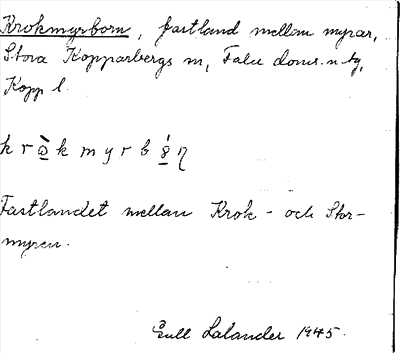 Krokmyrborn, fastland mellan myrar,
Stora Kopparbergs sn, Falu doms. n tg,
Kopp l.
k r ò̱ k m y r b ó̱ η
Fastlandet mellan Krok- och Stor-
myren.
Gull Lalander 1945.